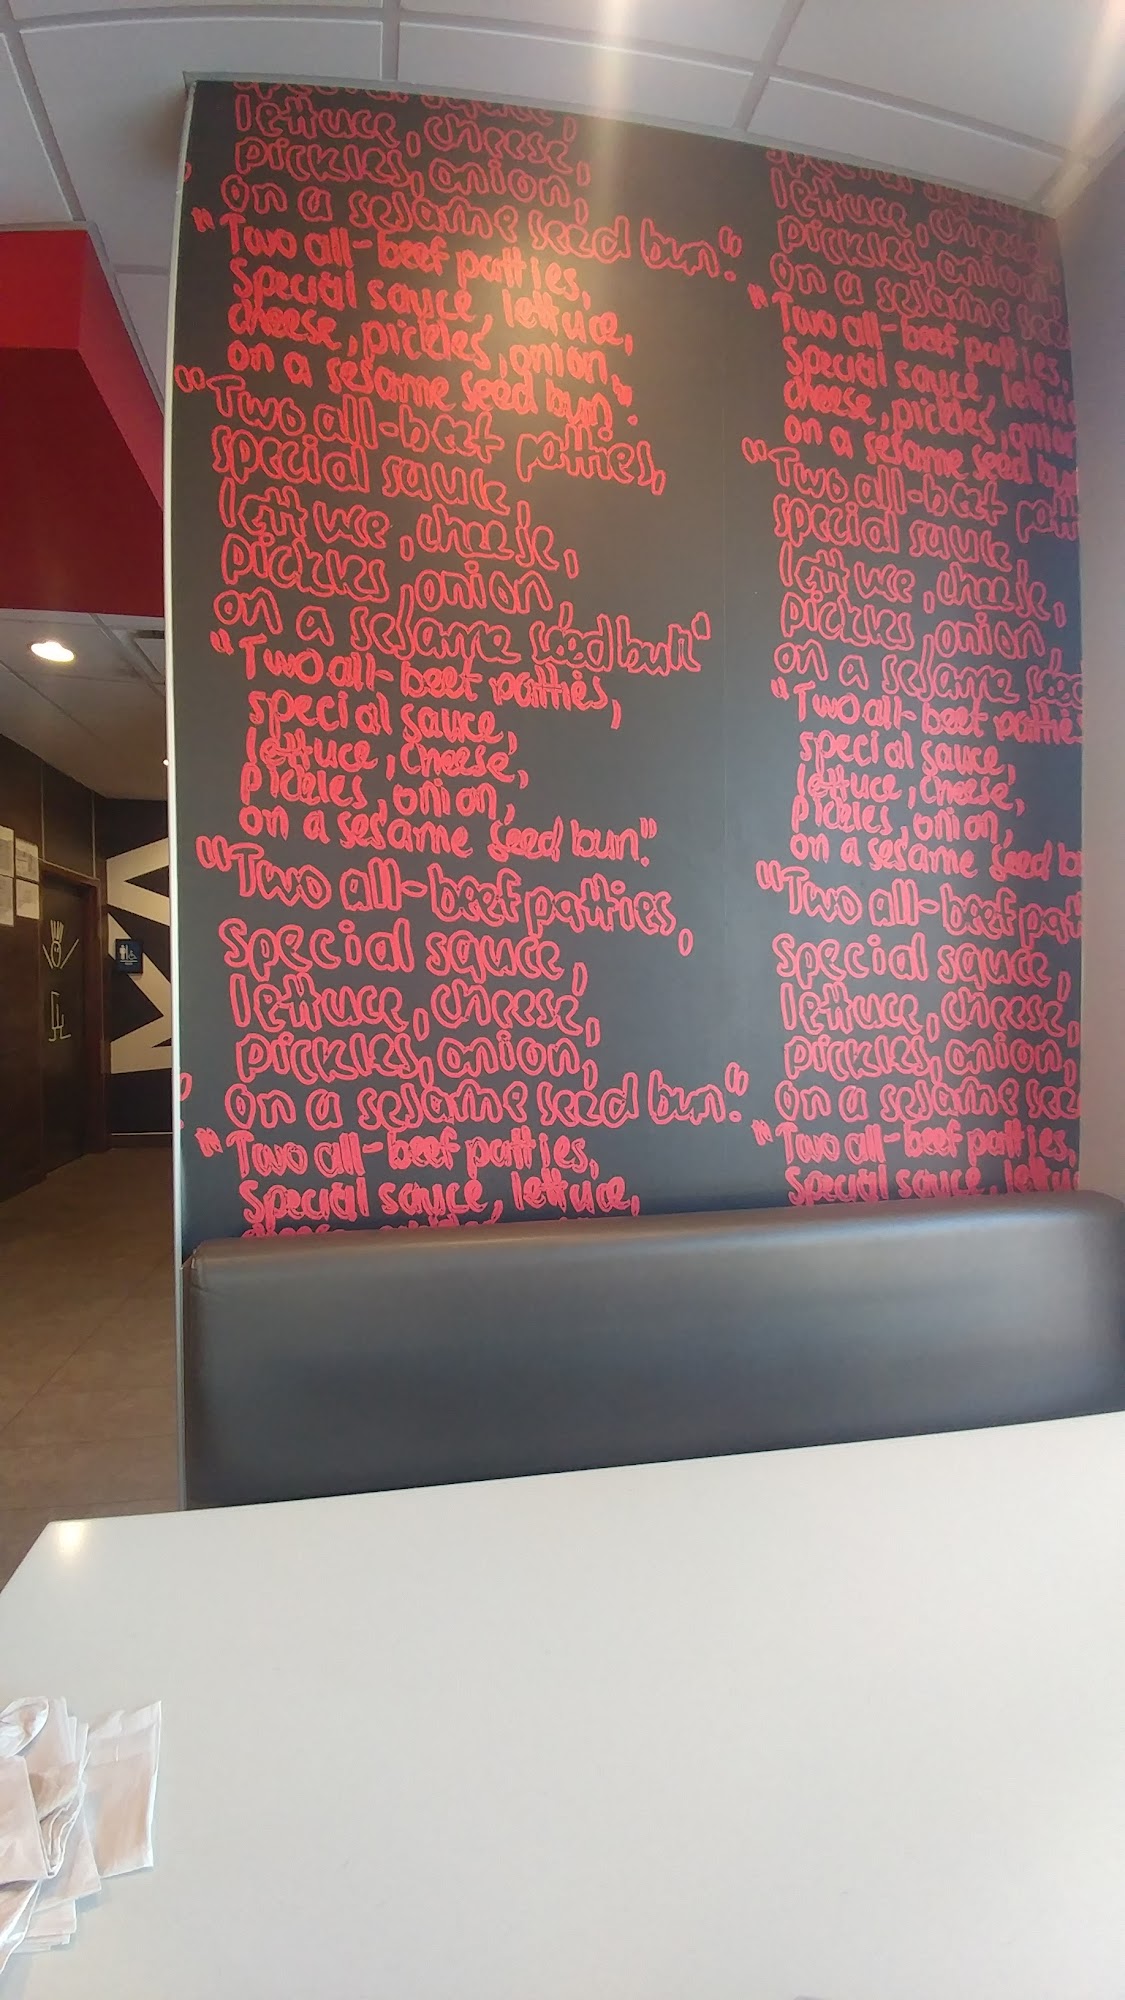 special sauce,
lettuce, cheese,
pickles, onion,
on a sesame seed bun."
"Two all-beef patties,
special sauce, lettuce,
cheese, pickles, onion,
on a sesame seed bun".
"Two all-beef patties,
special sauce,
lettuce, cheese,
pickles, onion,
on a sesame seed bun"
"Two all-beef patties,
special sauce,
lettuce, cheese,
pickles, onion,
on a sesame seed bun."
"Two all-beef patties,
special sauce,
lettuce, cheese,
pickles, onion,
on a sesame seed bun."
"Two all-beef patties,
special sauce, lettuce,
lettuce, cheese,
pickles, onion,
on a sesame see
"Two all-beef patties,
special sauce, lettu
cheese, pickles, onion
on a sesame seed bu
"Two all-beef patt
special sauce
lettuce, cheese,
pickles, onion,
on a sesame seed
"Two all-beef pattie
special sauce,
lettuce, cheese,
pickles, onion,
on a sesame seed b
"Two all-beef patt
special sauce,
lettuce, cheese,
pickles, onion,
on a sesame see
"Two all-beef patties,
special sauce, lettu